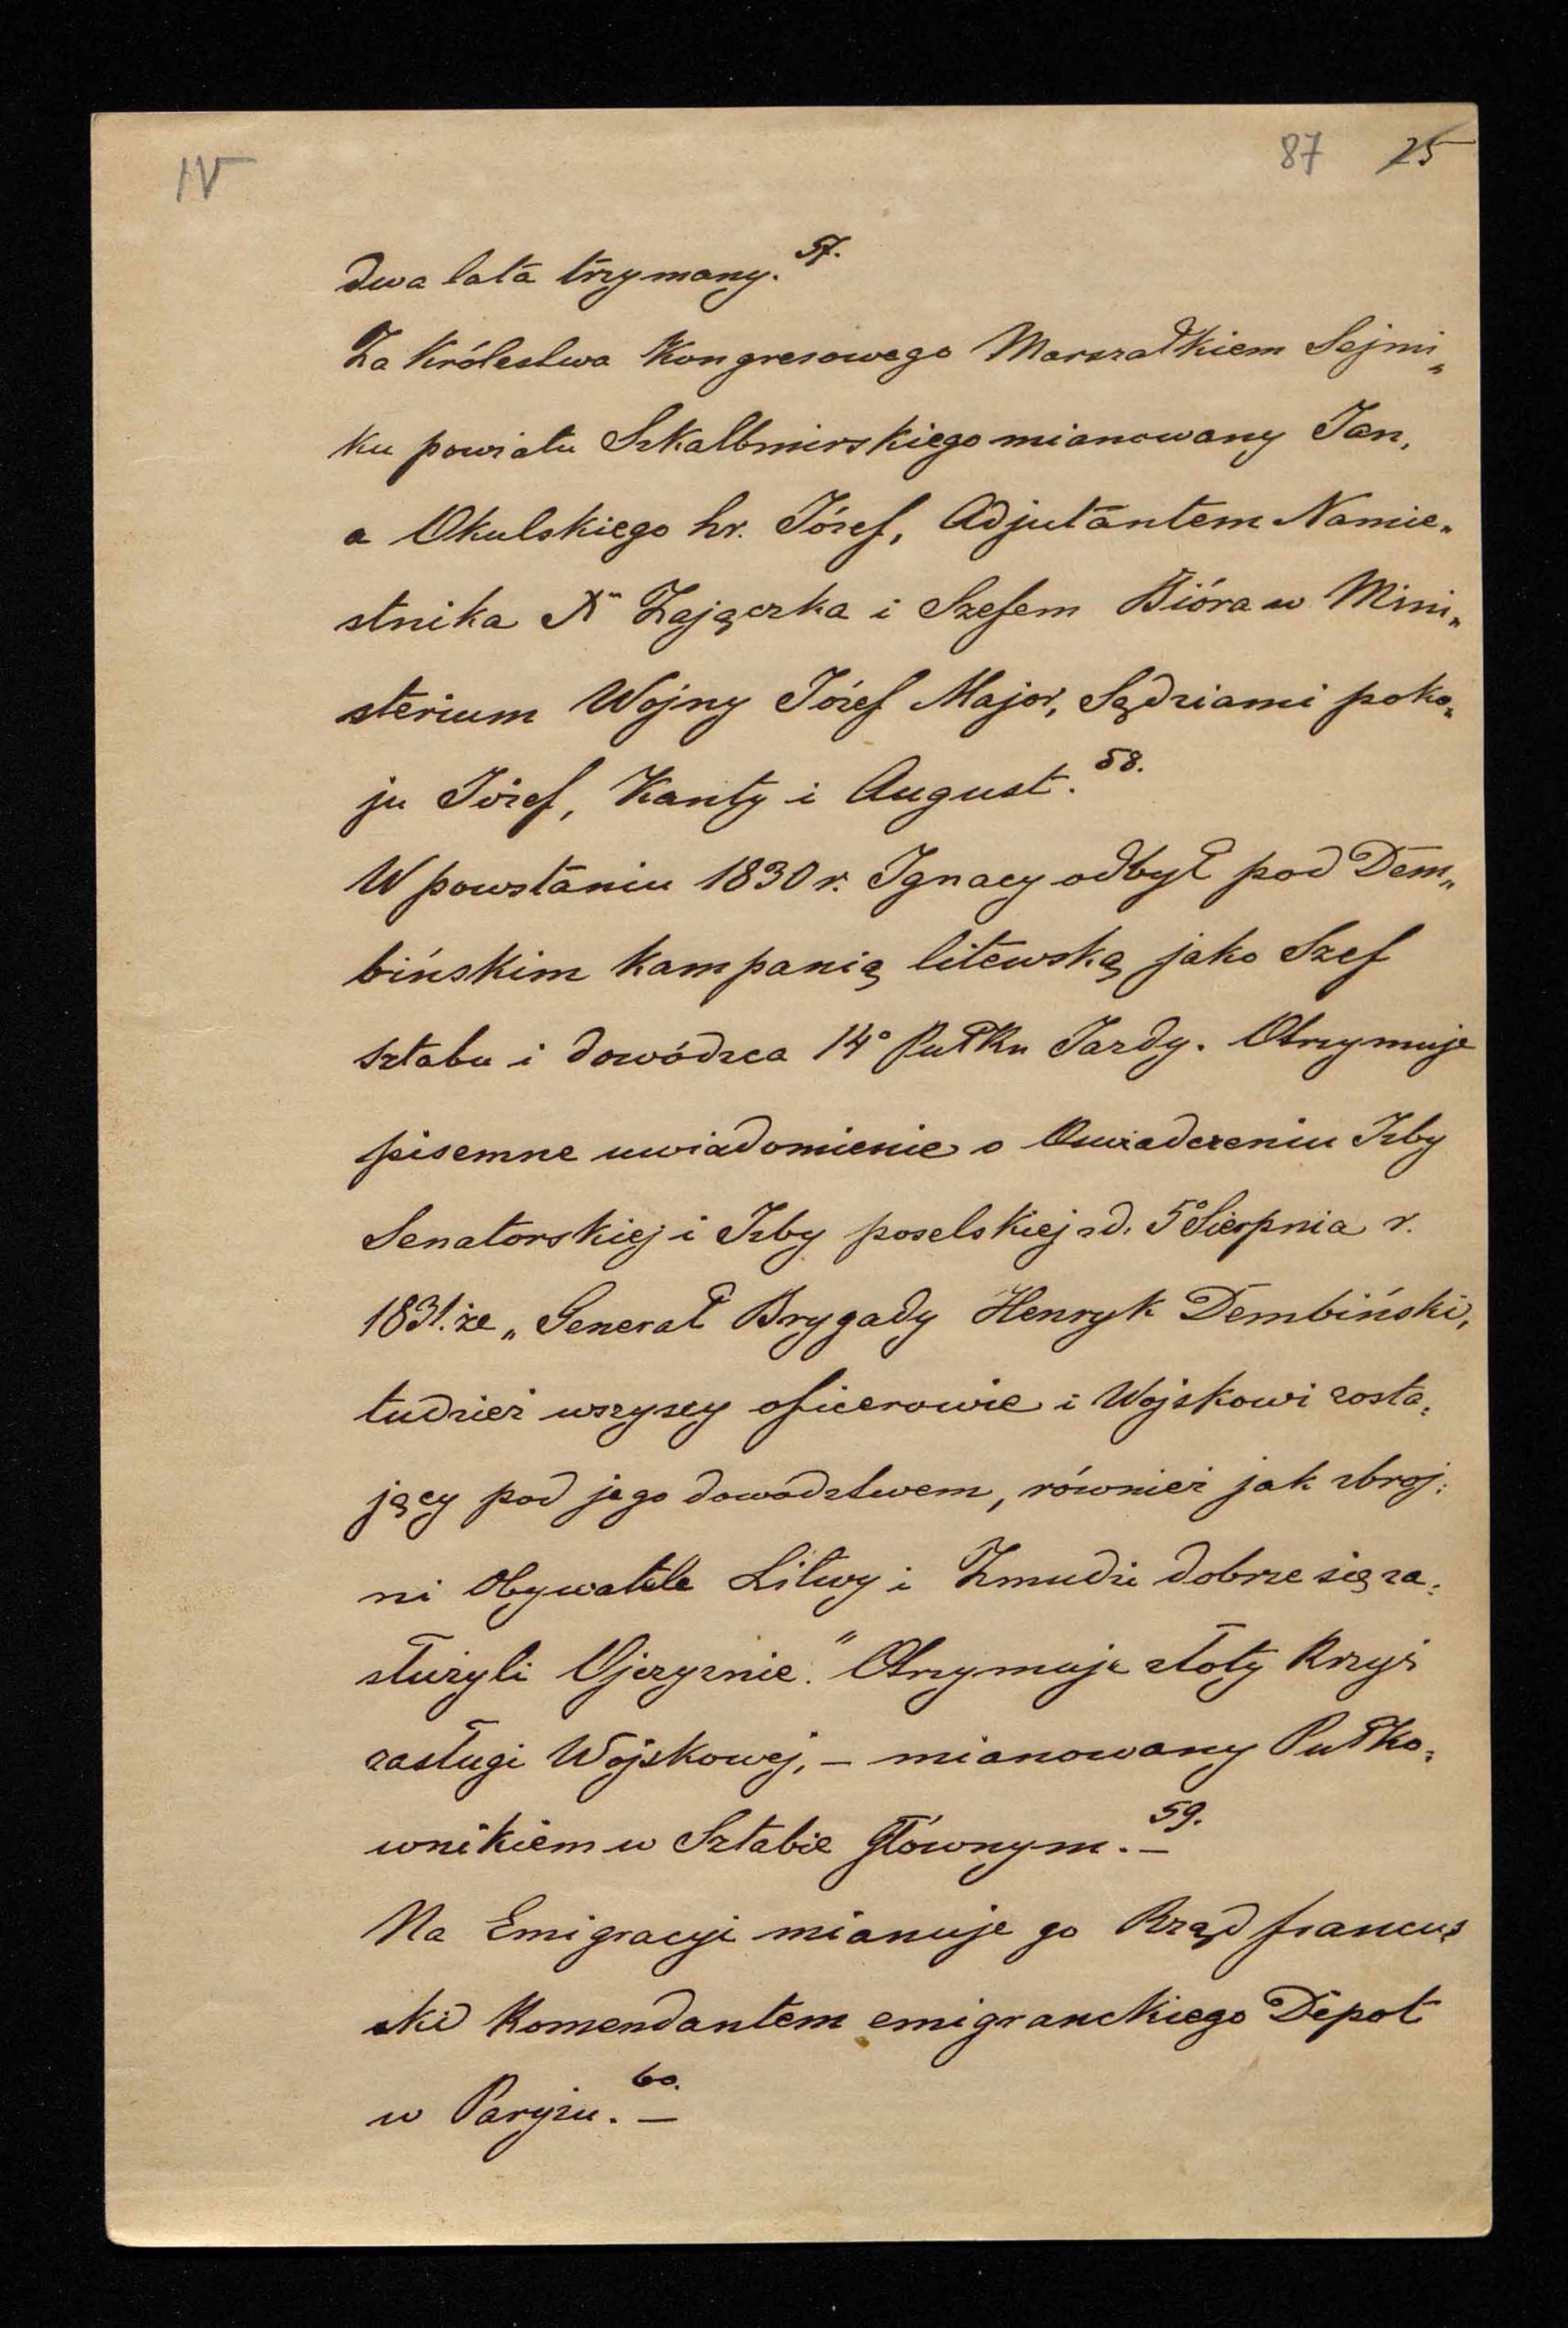 IV
87 25
dwa lata trzymany. 57.
Za Królestwa Kongresowego Marszałkiem Sejmi„
ku powiatu Szkalbmirskiego mianowany Jan,
a Okulskiego hr. Józef, Adjutantem Namie„
stnika Xn Zajączka i Szefem Bióra w Mini„
sterium Wojny Józef Major, Sędziami poko„
ju Józef, Kanty i August. 58.
W powstaniu 1830 r. Ignacy odbył pod Dem„
bińskim kampanią litewską jako Szef
sztabu i dowódzca 14° Pułku Jazdy. Otrzymuje
pisemne uwiadomienie o Oswiadczeniu Izby
Senatorskiej i Izby poselskiej zd. 5° Sierpnia r.
1831. że „Generał Brygady Henryk Dembiński,
tudzież wszyscy oficerowie i Wojskowi zosta„
jący pod jego dowodztwem, również jak zbroj„
ni Obywatele Litwy i Zmudzi dobrze się za„
służyli Ojczyznie." Otrzymuje złoty Krzyż
zasługi Wojskowej, — mianowany Pułko„
wnikiem w Sztabie Głównym. — 59.
Na Emigracyi mianuje go Rząd francus„
ki Komendantem emigranckiego Dépot
w Paryżu. — 60.